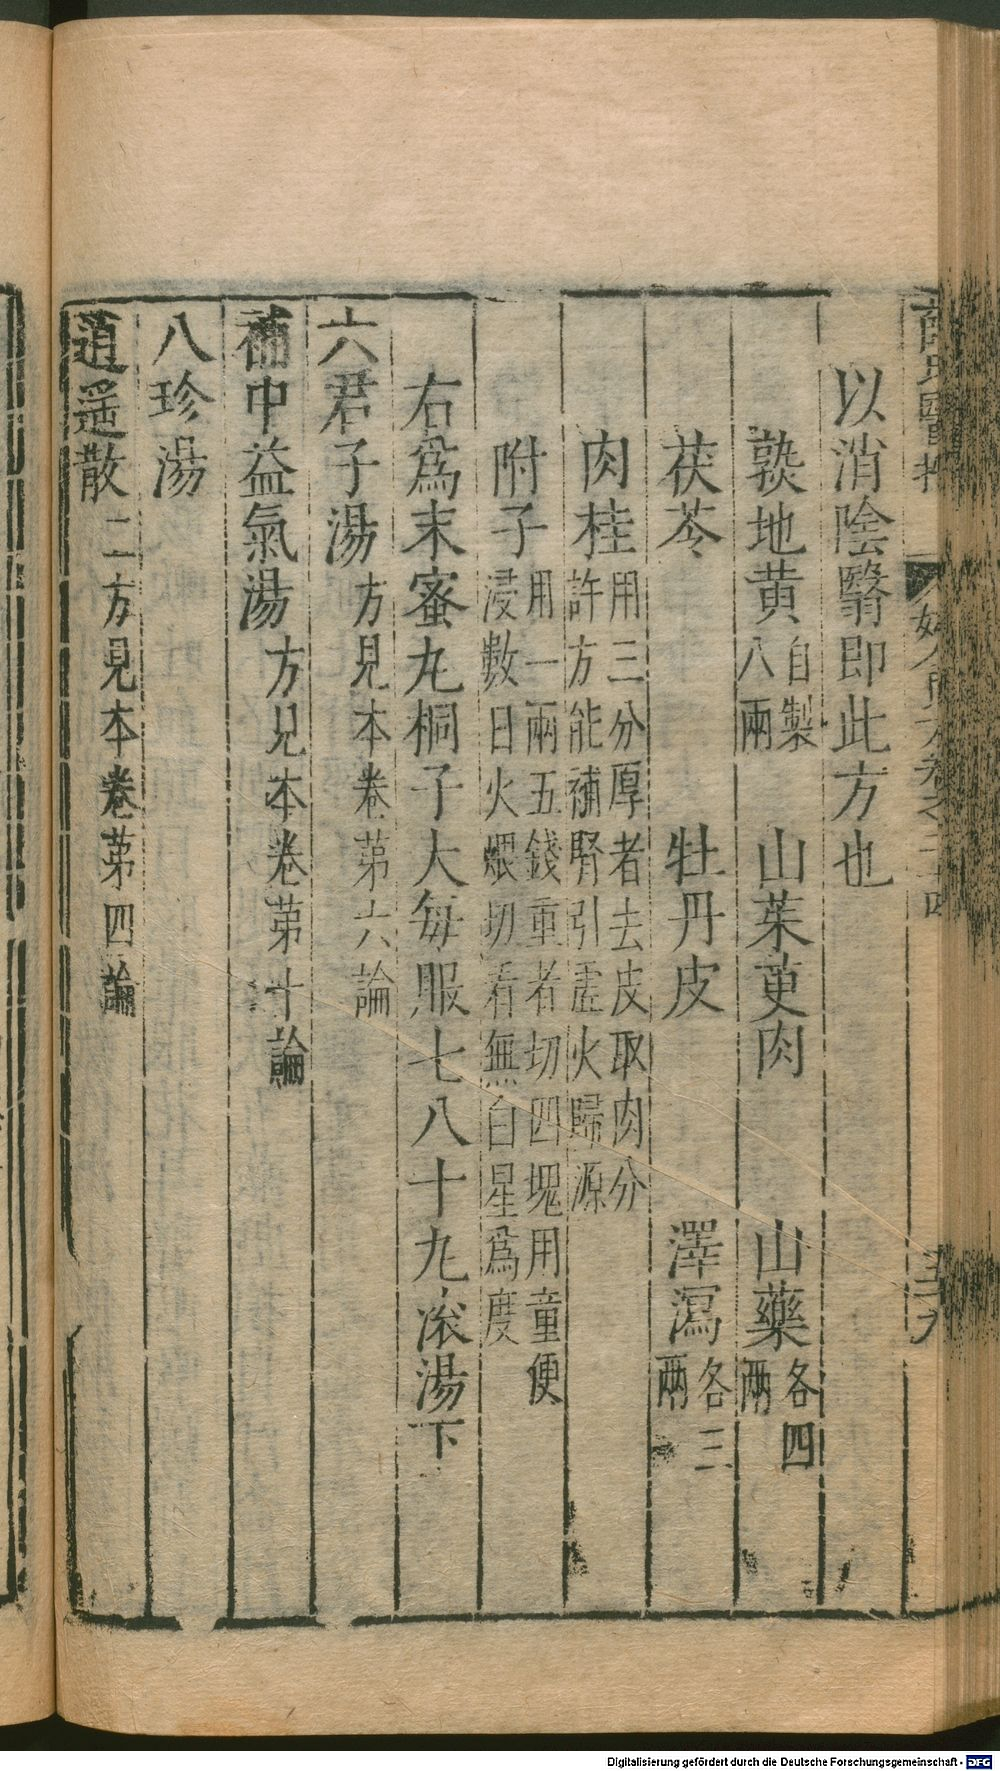 薛氏醫按 婦人良方卷之二十四 三十九
以消陰翳即此方也
熟地黃自製八兩 山茱萸肉 山藥各四兩
茯苓 牡丹皮 澤瀉各三兩
肉桂用三分厚者去皮取肉分許方能補腎引虛火歸源
附子用一兩五錢重者切四塊用童便浸數日火煨切看無白星爲度
右爲末蜜丸桐子大每服七八十丸滚湯下
六君子湯方見本卷第六論
補中益氣湯方見本卷第十論
八珍湯
逍遥散二方見本卷第四論
Digitalisierung gefördert durch die Deutsche Forschungsgemeinschaft - DFG